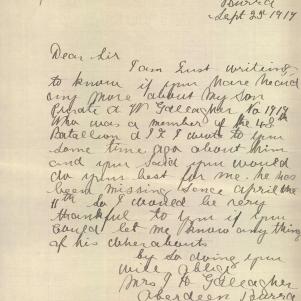 Burra
Sept 23rd 1917
Dear Sir
I am Just writing
to know if you have heard
any more about my son
Private J W Gallagher No 1919
Who was a member of the 48th
Batallion A I F I wrote to you
some time ago about him
and you said you would
do your best for me. he has
been missing sence april the
11th so I would be very
thankful to you if you
could let me know any thing
of his where abouts
by so doing you
will oblige
Mrs J D Gallagher
Aberdeen Burra